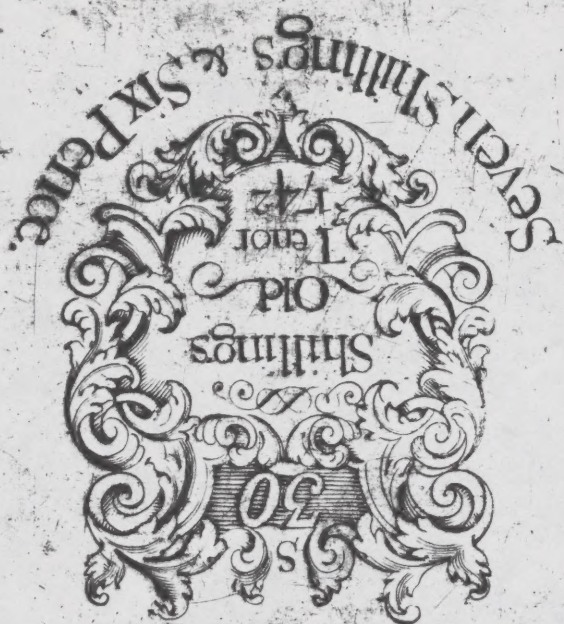 S
30
Shillings
Old
Tenor
1742
Seven Shillings & Six Pence.